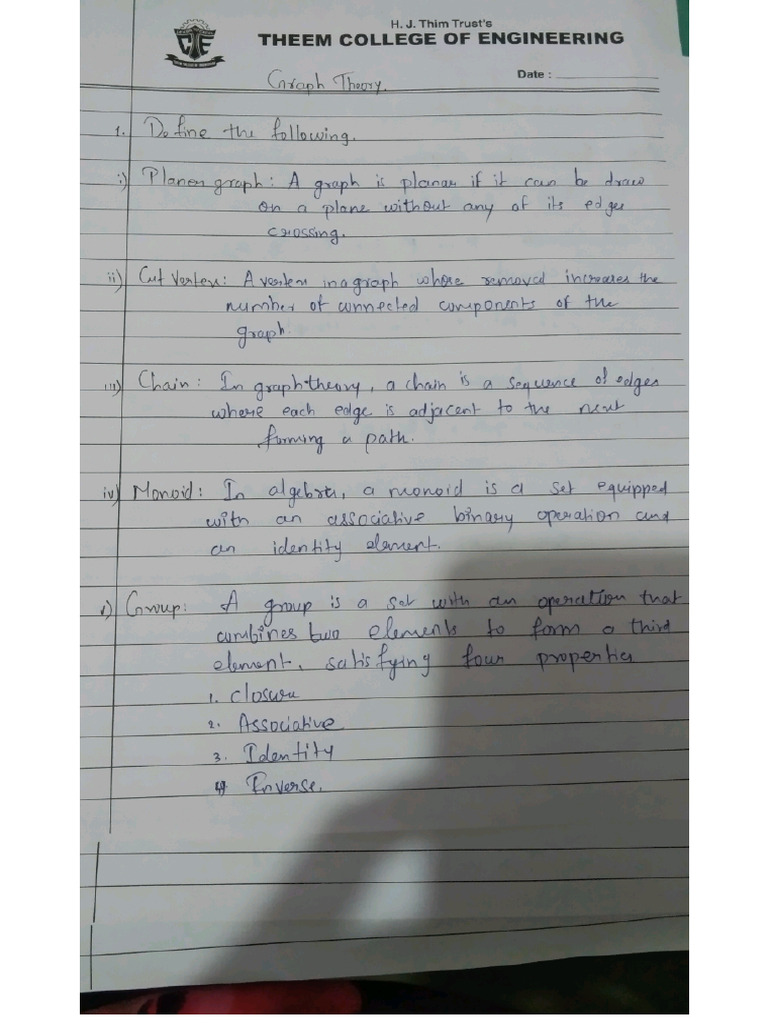 H. J. Thim Trust's
THEEM COLLEGE OF ENGINEERING
Date :
Graph Theory.
1. Define the following.
i) Planer graph: A graph is planar if it can be draw
on a plane without any of its edges
crossing.
ii) Cut Vertex: A vertex in a graph whose removed increases the
number of connected components of the
graph.
iii) Chain: In graph theory, a chain is a sequence of edges
where each edge is adjacent to the next
forming a path.
iv) Monoid: In algebra, a monoid is a set equipped
with an associative binary operation and
an identity element.
v) Group: A group is a set with an operation that
combines two elements to form a third
element, satisfying four properties
1. Closure
2. Associative
3. Identity
4 Inverse.